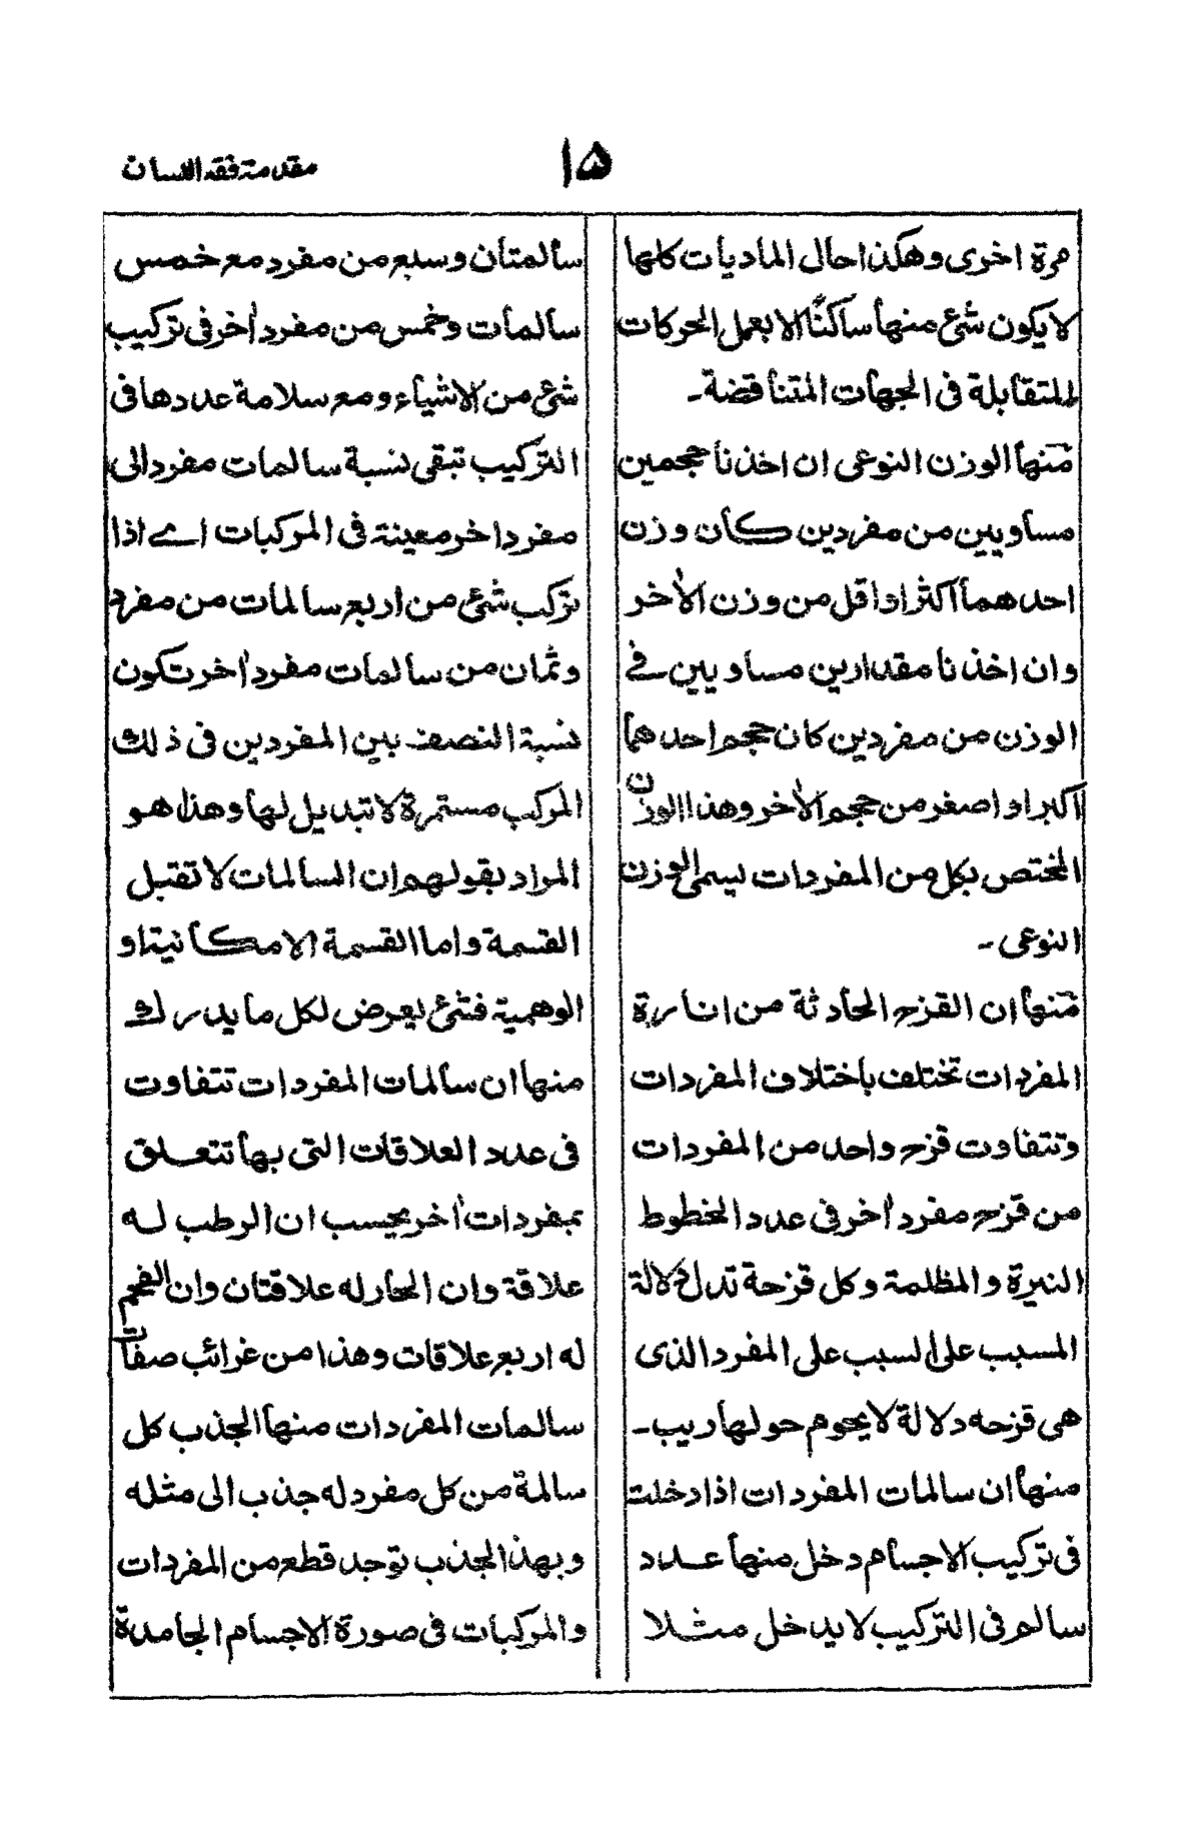 مقدمة فقه اللسان
۱۵
مرة اخرى وهكذا حال الماديات كلها
لا يكون شئ منها ساكنًا الا بعمل الحركات
المتقابلة فى الجهات المتناقضة۔
منها الوزن النوعى ان اخذنا حجمين
مساويين من مفردين كان وزن
احدهما اكثر او اقل من وزن الاٰخر
وان اخذنا مقدارين مساويين فے
الوزن من مفردين كان حجم احدهما
اكبر او اصغر من حجم الاٰخر وهذا الوزن
المختص بكل من المفردات يسمى الوزن
النوعى۔
منها ان القزح الحادثة من انارة
المفردات تختلف باختلاف المفردات
وتتفاوت قزح واحد من المفردات
من قزح مفرد اٰخر فى عدد الخطوط
النيرة والمظلمة وكل قزحة تدل دلالة
المسبب على السبب على المفرد الذى
هى قزحه دلالة لا يحوم حولها ريب۔
منها ان سالمات المفردات اذا دخلت
فى تركيب الاجسام دخل منها عدد
سالم فى التركيب لا يدخل مثلا
سالمتان وسبع من مفرد مع خمس
سالمات وخمس من مفرد اٰخر فى تركيب
شئ من الاشياء ومع سلامة عددها فى
التركيب تبقى نسبة سالمات مفرد الى
مفرد اخر معينة فى المركبات اے اذا
تركب شئ من اربع سالمات من مفرد
وثمان من سالمات مفرد اٰخر تكون
نسبة النصف بين المفردين فى ذلك
المركب مستمرة لا تبديل لها وهذا هو
المراد بقولهم ان السالمات لا تقبل
القسمة واما القسمة الامكانية او
الوهمية فشئ يعرض لكل ما يدرك
منها ان سالمات المفردات تتفاوت
فى عدد العلاقات التى بها تتعلق
بمفردات اٰخر يحسب ان الرطب له
علاقة وان الحار له علاقتان وان الفحم
له اربع علاقات وهذا من غرائب صفات
سالمات المفردات منها الجذب كل
سالمة من كل مفرد له جذب الى مثله
وبهذا الجذب توجد قطع من المفردات
والمركبات فى صورة الاجسام الجامدة